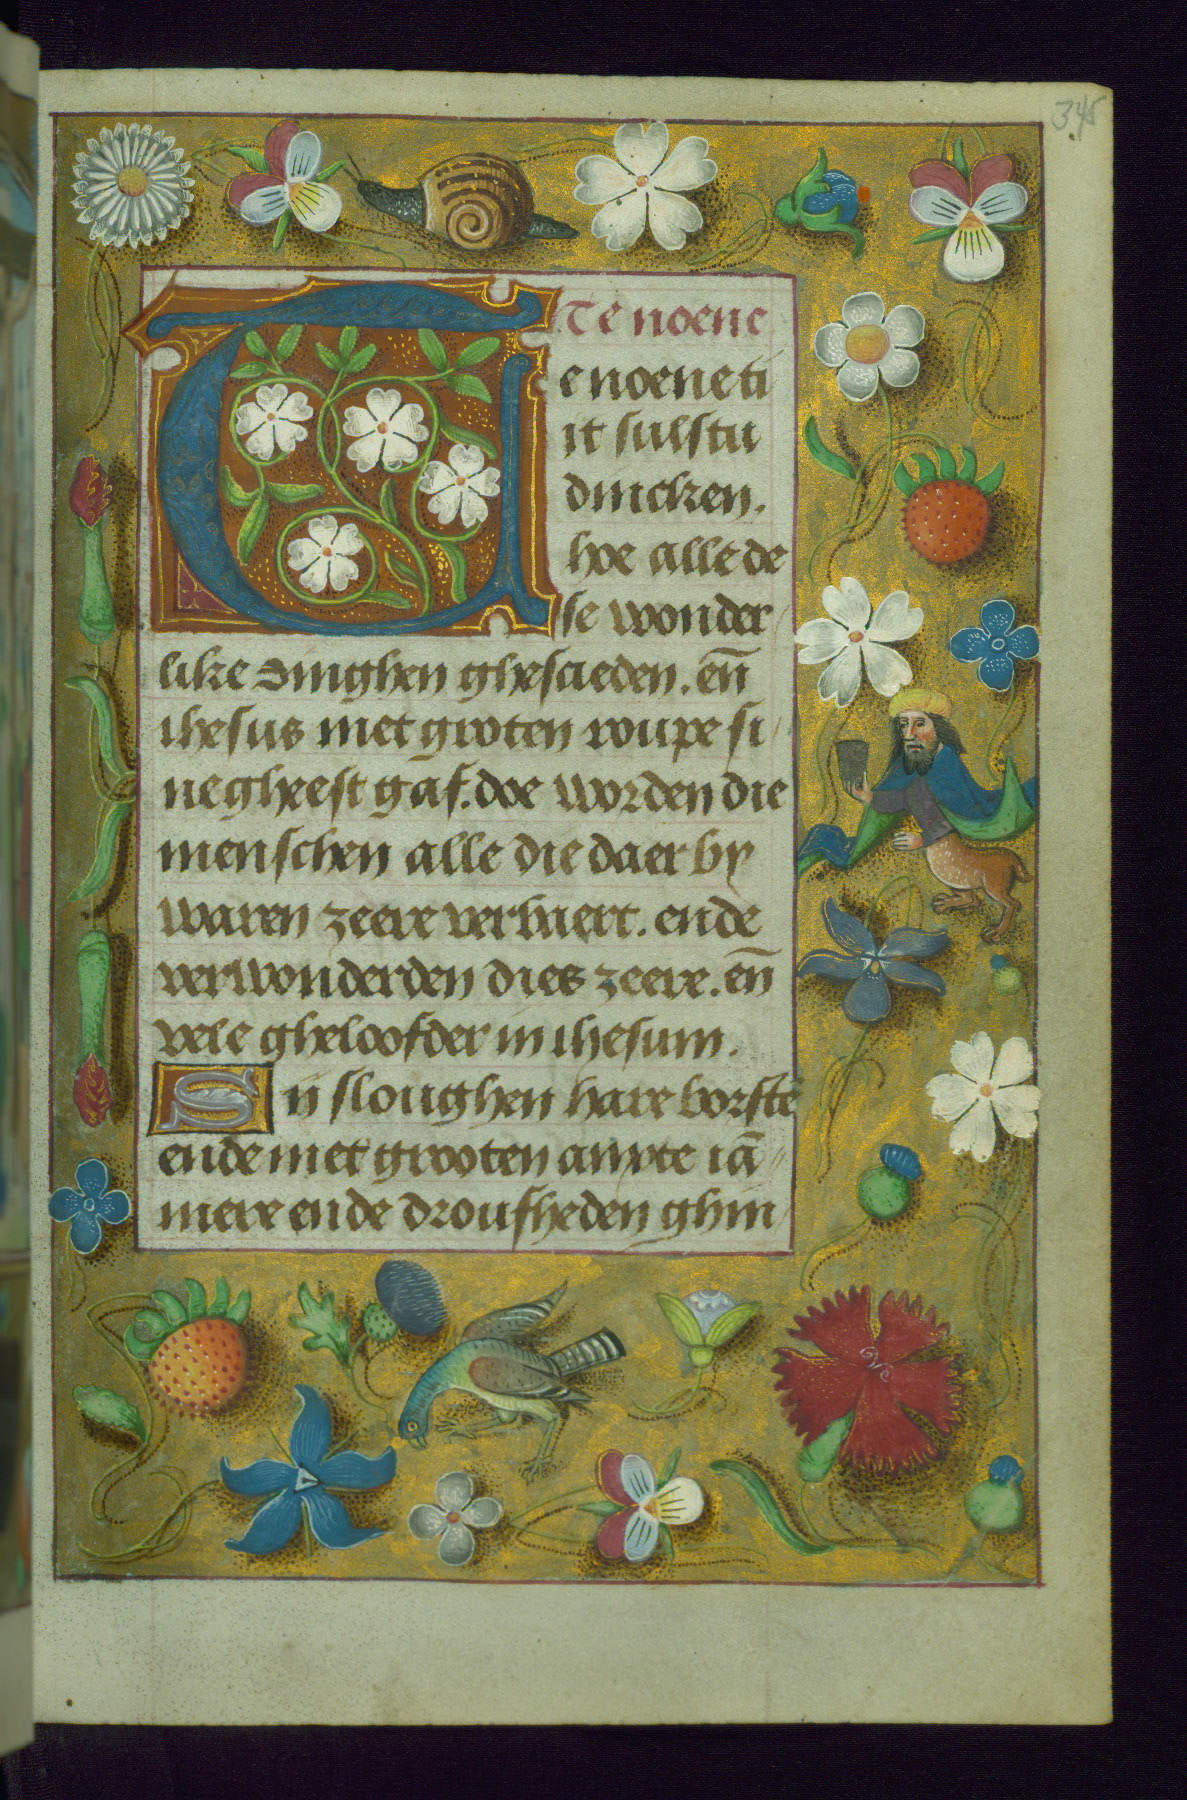 345
Te noene
Te noene ti
it sulstu
dincken.
hoe alle de
se wonder
like dinghen ghescieden. en̄
ihesus met groten roupe si
ne gheest gaf. doe worden die
menschen alle die daer by
waren zeere vervaert. ende
verwonderden dies zeere. en̄
vele gheloofder in ihesum.
Si sloughen hare borstē
ende met grooten anxte iā
mere ende droufheden ghin